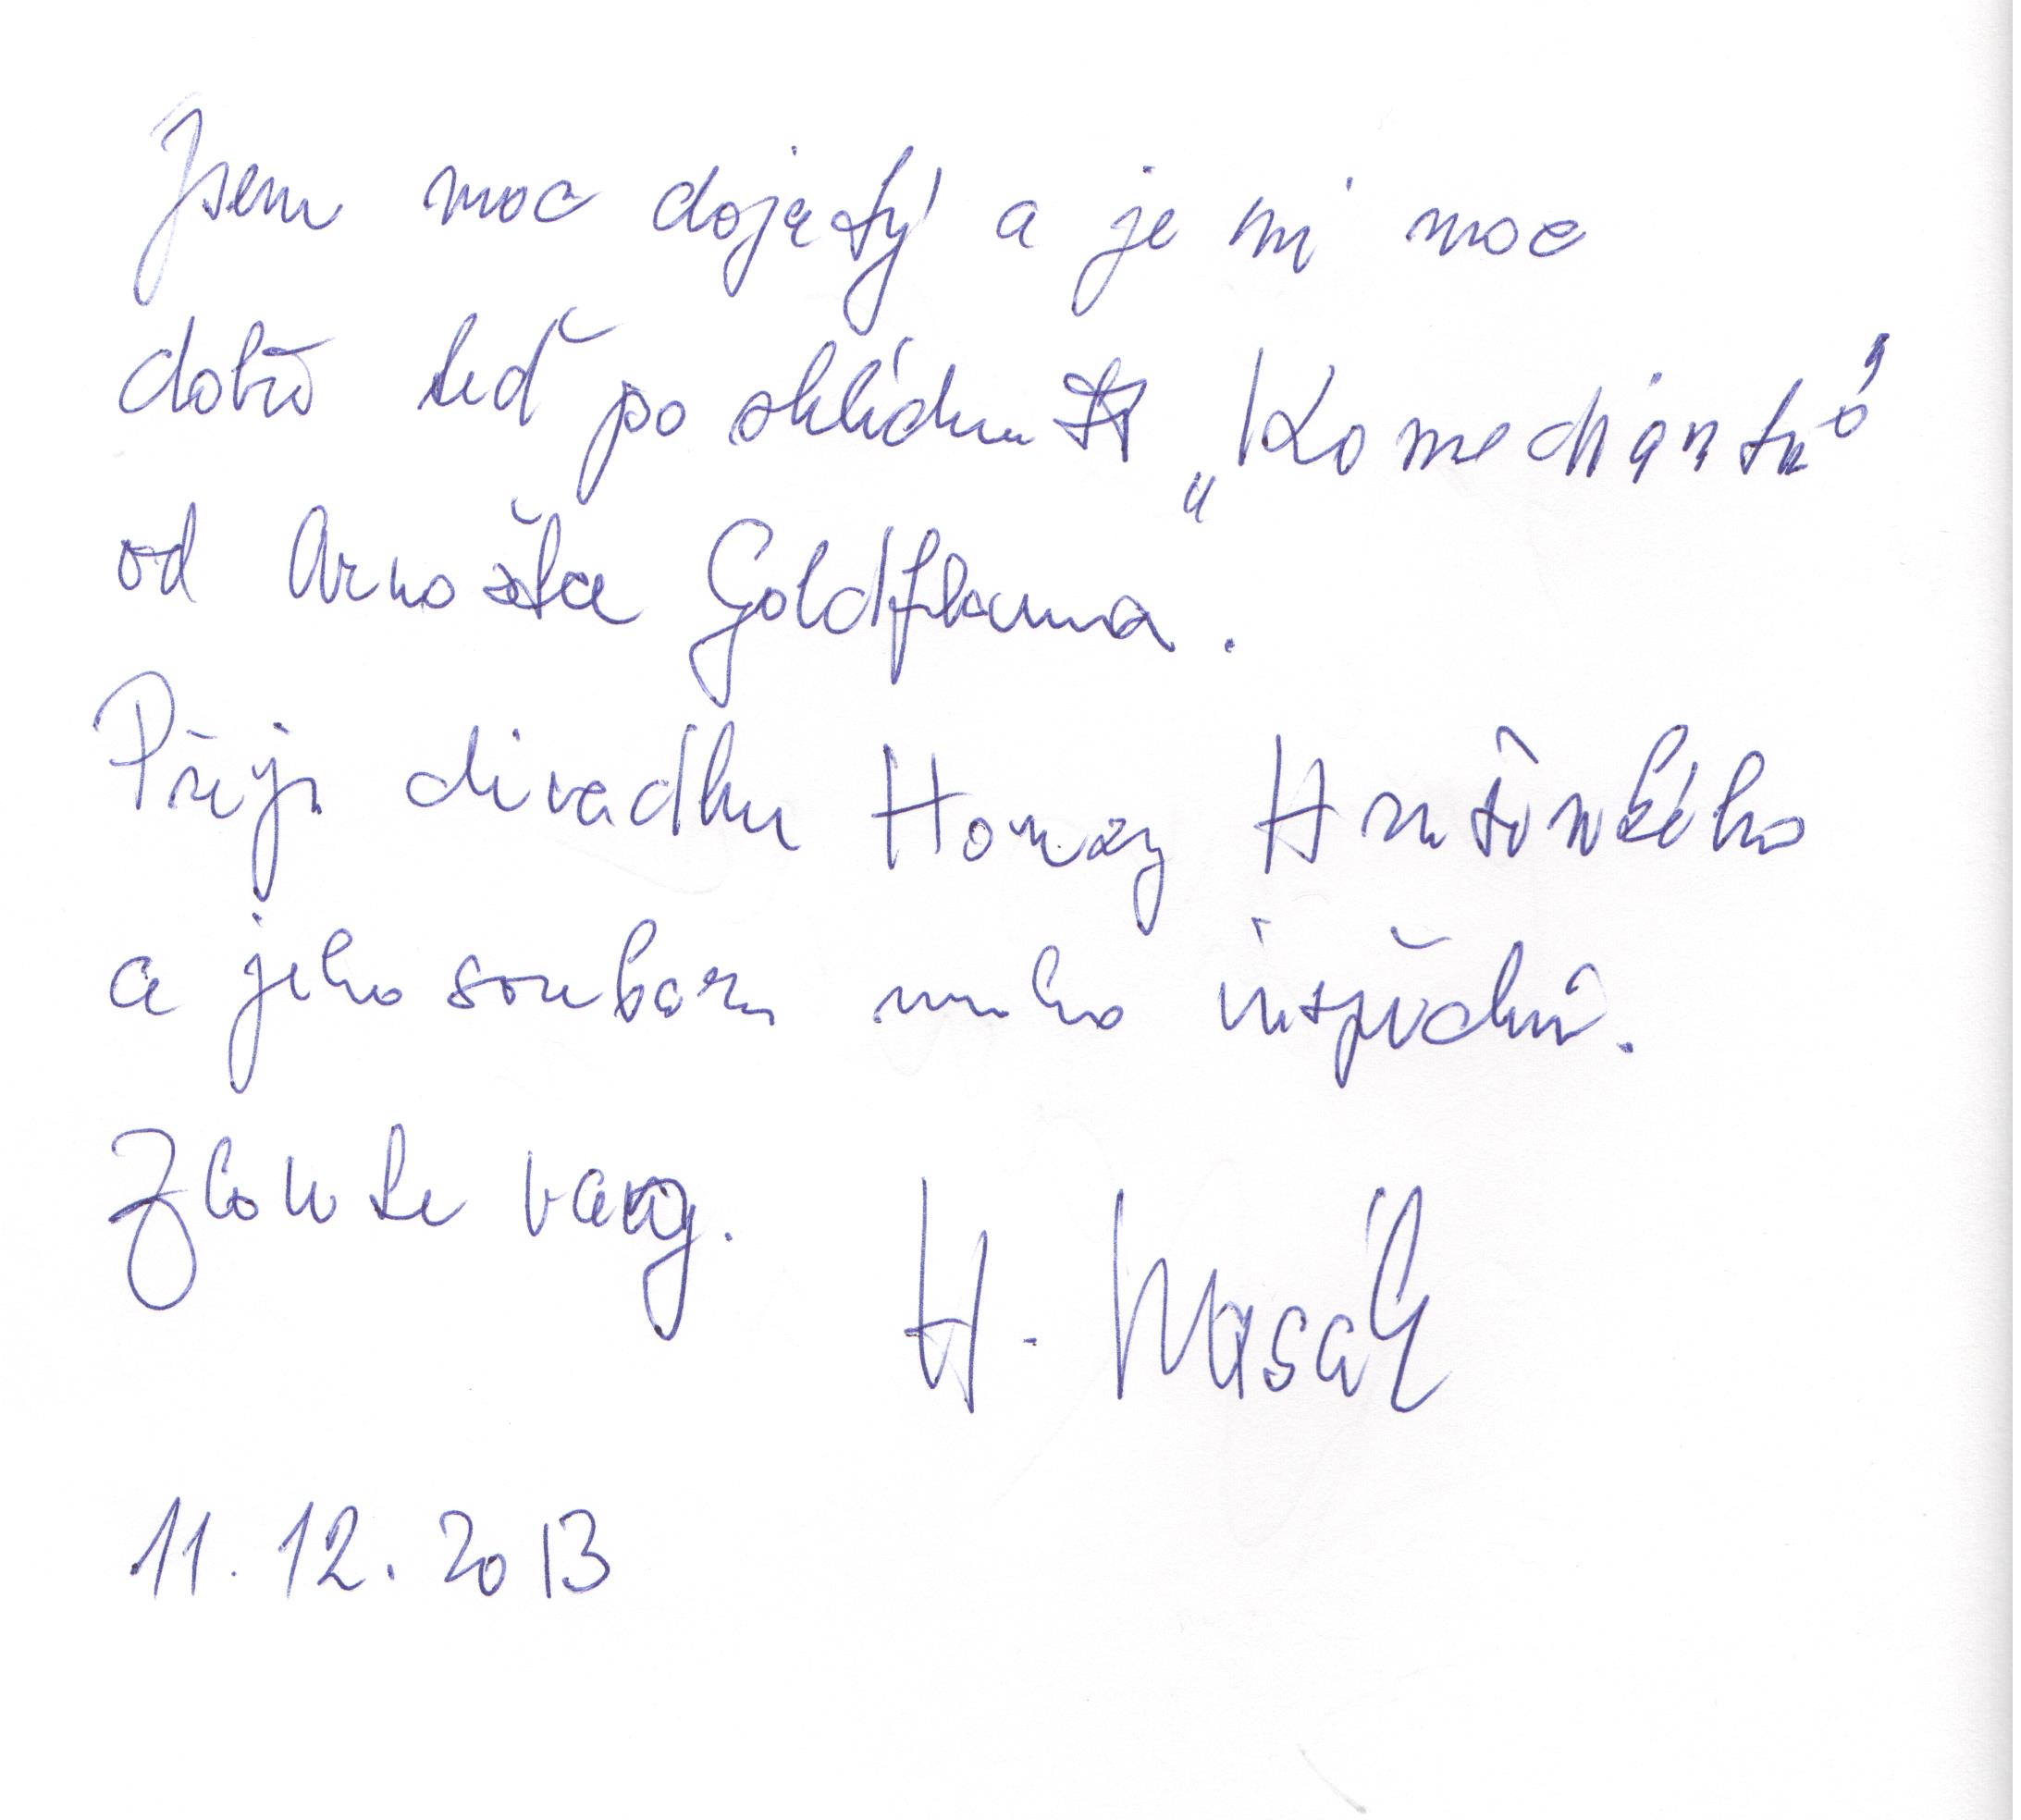 Jsem moc dojatý a je mi moc
dobře teď po shlédnutí „Komediantů"
od Arnošta Goldflama.
Přeji divadlu Honzy Hrušínského
a jeho souboru mnoho úspěchů.
Zlomte vazy.
H.
11. 12. 2013